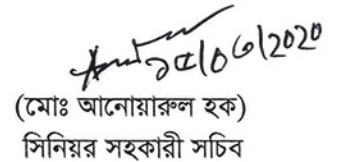 ১৫/০৩/2020
(মোঃ আনোয়ারুল হক)
সিনিয়র সহকারী সচিব